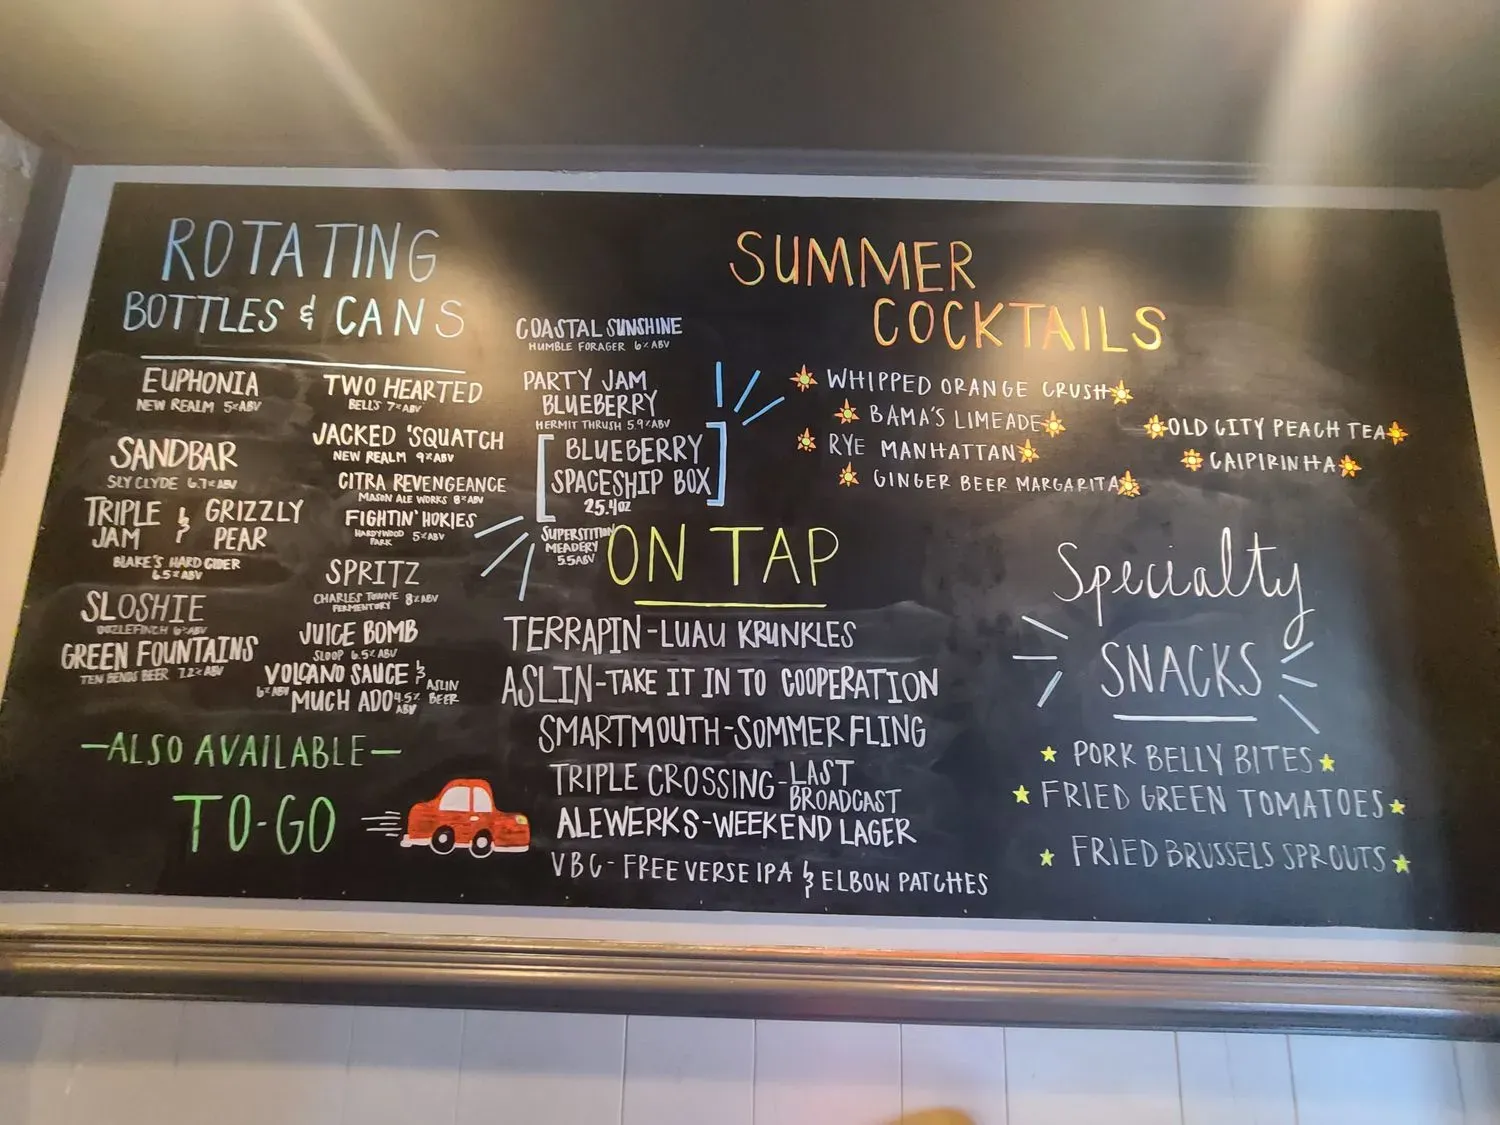 ROTATING
BOTTLES & CANS
EUPHONIA
NEW REALM 5% ABV
SANDBAR
SLY CLYDE 6.7% ABV
TRIPLE JAM & GRIZZLY PEAR
BLAKE'S HARD CIDER
6.5% ABV
SLOSHIE
OOZLEFINCH 6% ABV
GREEN FOUNTAINS
TEN BENDS BEER 7.2% ABV
TWO HEARTED
BELLS 7% ABV
JACKED 'SQUATCH
NEW REALM 9% ABV
CITRA REVENGEANCE
MASON ALE WORKS 8% ABV
FIGHTIN' HOKIES
HARDYWOOD PARK 5% ABV
SPRITZ
CHARLES TOWNE FERMENTORY 8% ABV
JUICE BOMB
SLOOP 6.5% ABV
VOLCANO SAUCE &
6% ABV MUCH ADO 4.5% ABV ASLIN BEER
COASTAL SUNSHINE
HUMBLE FORAGER 6% ABV
PARTY JAM
BLUEBERRY
HERMIT THRUSH 5.9% ABV
[BLUEBERRY
SPACESHIP BOX]
25.4OZ
SUPERSTITION
MEADERY
5.5 ABV
-ALSO AVAILABLE-
TO-GO
SUMMER
COCKTAILS
WHIPPED ORANGE CRUSH
BAMA'S LIMEADE
RYE MANHATTAN
GINGER BEER MARGARITA
OLD CITY PEACH TEA
CAIPIRINHA
ON TAP
TERRAPIN-LUAU KRUNKLES
ASLIN-TAKE IT IN TO COOPERATION
SMARTMOUTH-SOMMER FLING
TRIPLE CROSSING-LAST
BROADCAST
ALEWERKS-WEEKEND LAGER
VBC-FREE VERSE IPA & ELBOW PATCHES
Specialty
SNACKS
PORK BELLY BITES
FRIED GREEN TOMATOES
FRIED BRUSSELS SPROUTS